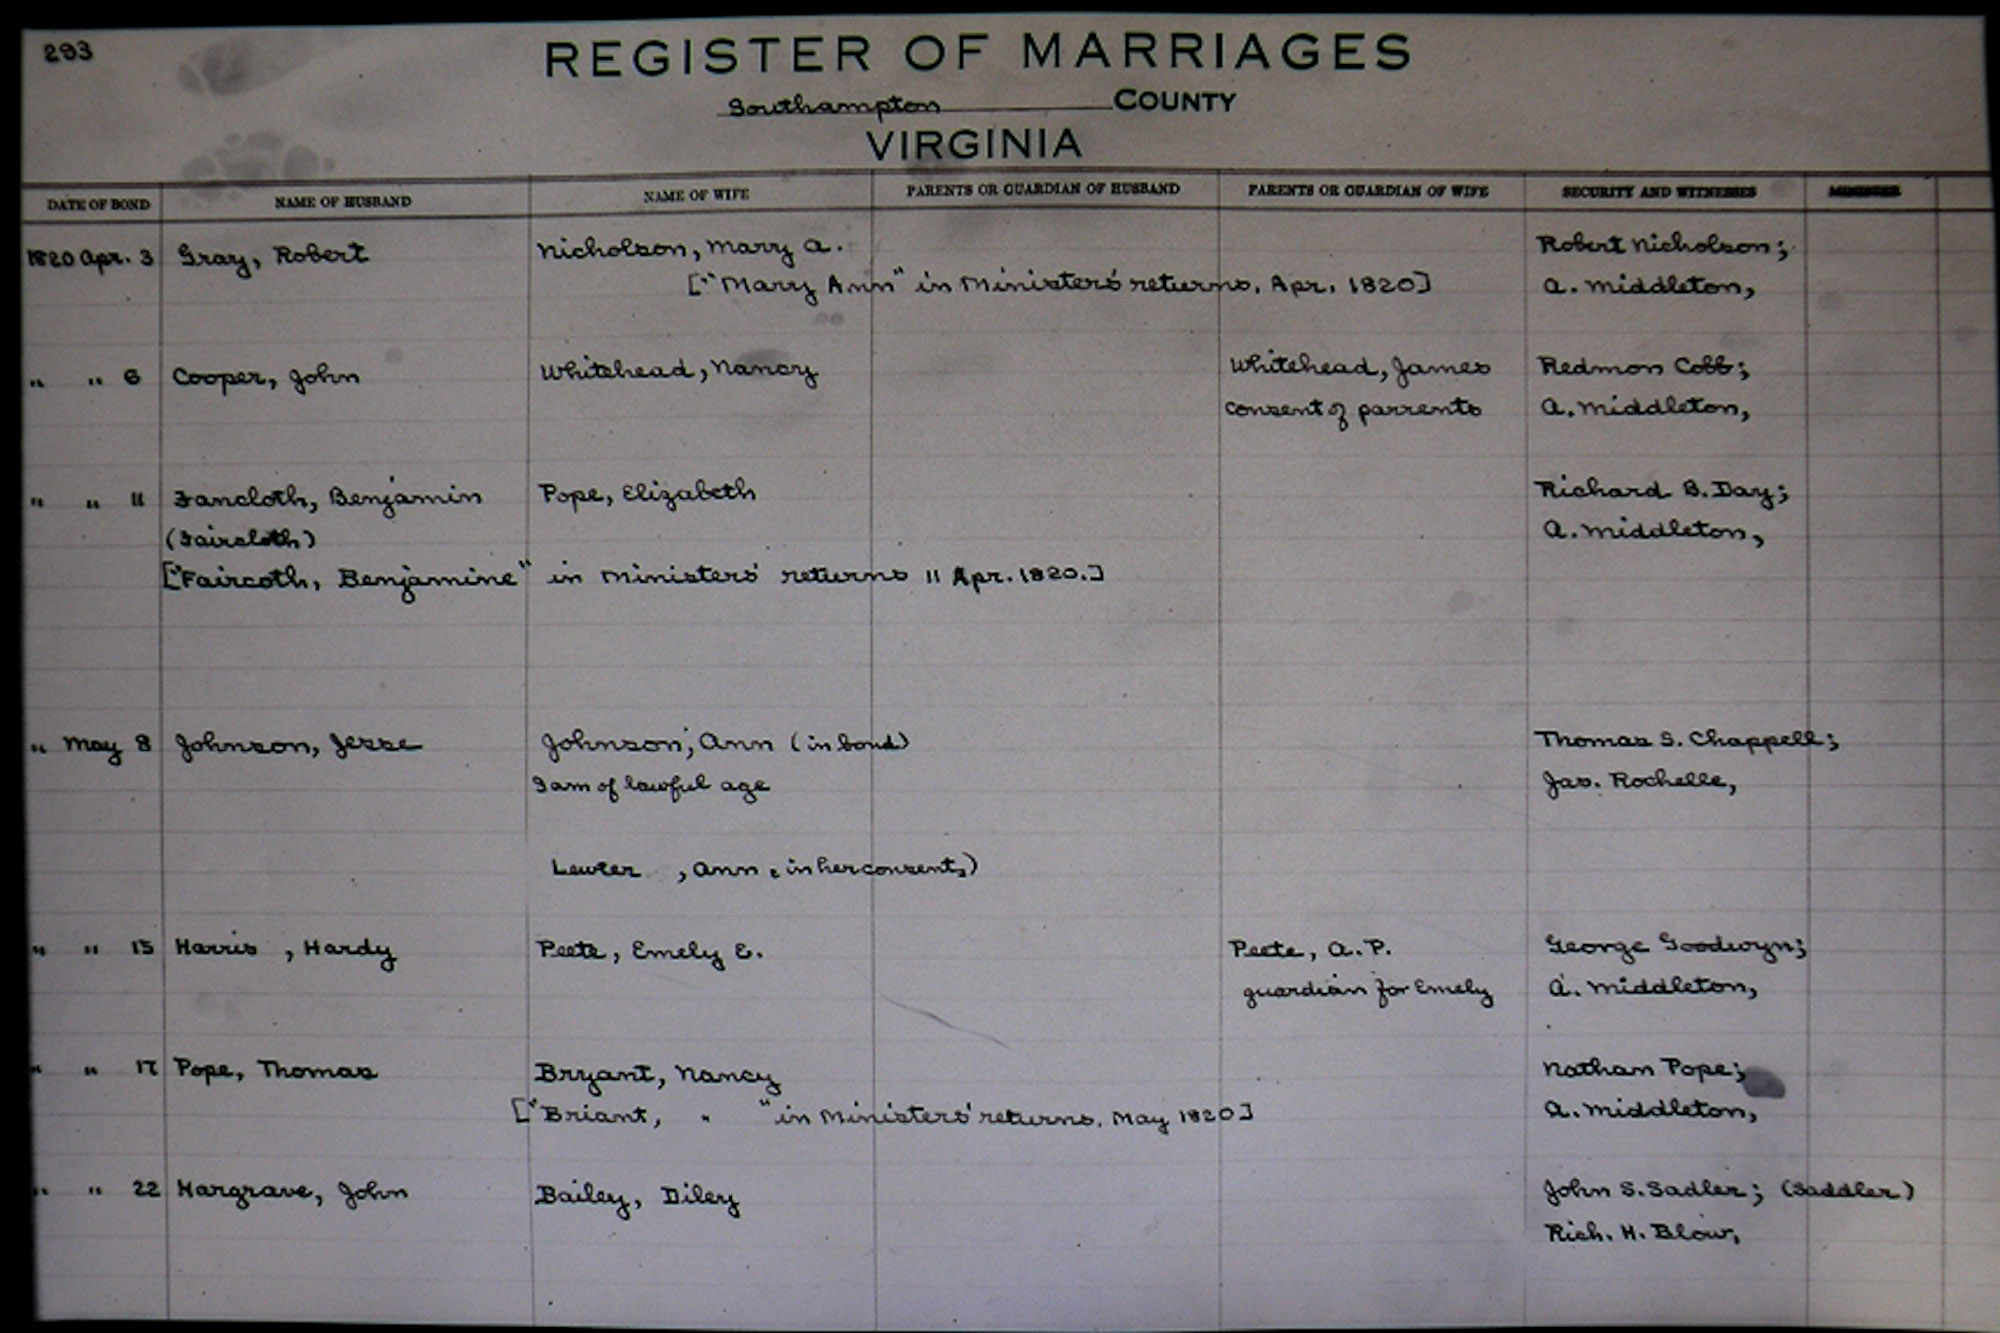 293
REGISTER OF MARRIAGES
Southampton COUNTY
VIRGINIA
DATE OF BOND NAME OF HUSBAND NAME OF WIFE PARENTS OR GUARDIAN OF HUSBAND PARENTS OR GUARDIAN OF WIFE SECURITY AND WITNESSES MINISTER
1820 Apr. 3 Gray, Robert Nicholson, Mary A. Robert Nicholson;
["Mary Ann" in Ministers' returns, Apr. 1820] A. Middleton,
" " 6 Cooper, John Whitehead, Nancy Whitehead, James Redmon Cobb;
consent of parrents A. Middleton,
" " 11 Fancloth, Benjamin Pope, Elizabeth Richard B. Day;
(Faircloth) A. Middleton,
["Faircoth, Benjamine" in Ministers' returns 11 Apr. 1820.]
" May 8 Johnson, Jesse Johnson, Ann (in bond) Thomas S. Chappell;
I am of lawful age Jas. Rochelle,
Lewter , Ann (in her consent,)
" " 15 Harris , Hardy Peete, Emely E. Peete, A. P. George Goodwyn;
guardian for Emely A. Middleton,
" " 17 Pope, Thomas Bryant, Nancy Nathan Pope;
["Briant, " " in Ministers' returns, May 1820] A. Middleton,
" " 22 Hargrave, John Bailey, Diley John S. Sadler; (Saddler)
Rich. H. Blow,